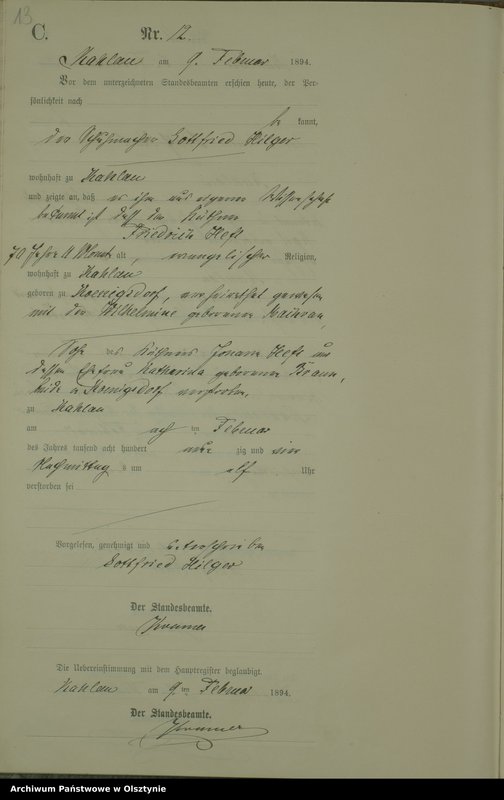 13
C.
Nr. 12.
Kahlau am 9. Februar 1894.
Vor dem unterzeichneten Standesbeamten erschien heute, der Per-
sönlichkeit nach
be kannt,
der Schuhmacher Gottfried Hilger
wohnhaft zu Kahlau
und zeigte an, daß es ihm aus eigener Wissenschaft
bekannt ist daß der
Friedrich Heft
70 Jahre alt, evangelischer Religion,
wohnhaft zu Kahlau
geboren zu Koenigsdorf, verheirathet gewesen
mit der Wilhelmine geborenen
Sohn des Johann Heft und
dessen Ehefrau Katharina geborenen Braun,
beide in Koenigsdorf verstorben,
zu Kahlau
am acht ten Februar
des Jahres tausend acht hundert neun zig und vier
Nachmittag s um elf Uhr
verstorben sei
Vorgelesen, genehmigt und unterschrieben
Gottfried Hilger
Der Standesbeamte.
Die Uebereinstimmung mit dem Hauptregister beglaubigt.
Kahlau am 9. ten Februar 1894.
Der Standesbeamte.
Archiwum Państwowe w Olsztynie